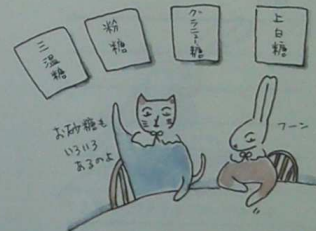 三温糖
粉糖
グラニュー糖
上白糖
お砂糖も
いろいろ
あるのよ
フーン